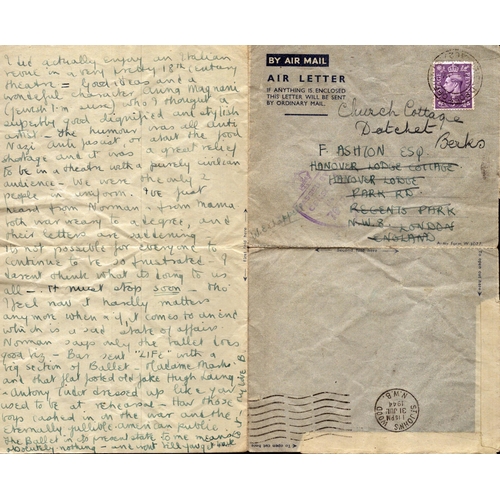 I did actually enjoy an Italian
revue in a very pretty 18th Century
theatre = Good ideas and a
wonderful character Anna Magnani
(French I'm sure) who I thought a
superbly good dignified and stylish
artist - the humour was all anti
Nazi and fascist or about the food
shortage and it was a great relief
to be in a theatre with a purely civilian
audience - We were the only 2
people in uniform. I've just
heard from Norman - from Mama
both war weary to a degree, and
their letters are
is not possible for everyone to
continue to be so frustrated? I
darent think what its doing to us
all - It must stop soon - tho'
I feel now it hardly matters
any more when or if it comes to an end
which is a sad state of affairs
Norman says only the ballet does
good biz - Bas sent "LIFE" with a
big section of Ballet - Madame Markova
and that flat footed old fake Hugh Laing
Antony Tudor dressed up like a
used to be at rehearsal - How those
boys cashed in on the war and the
eternally gullible american public -
The Ballet in its present state to me means
absolutely nothing - one must
BY AIR MAIL
AIR LETTER
IF ANYTHING IS ENCLOSED
THIS LETTER WILL BE SENT
BY ORDINARY MAIL.
Church Cottage
Datchet
Berks
F. ASHTON ESQ
HANOVER LODGE COTTAGE
HANOVER LODGE
PARK RD
REGENTS PARK
N.W.8. LONDON
ENGLAND
To open cut here
To open cut here
ST. JOHN'S WOOD
N.W.8.
PM
31 JUL
1944